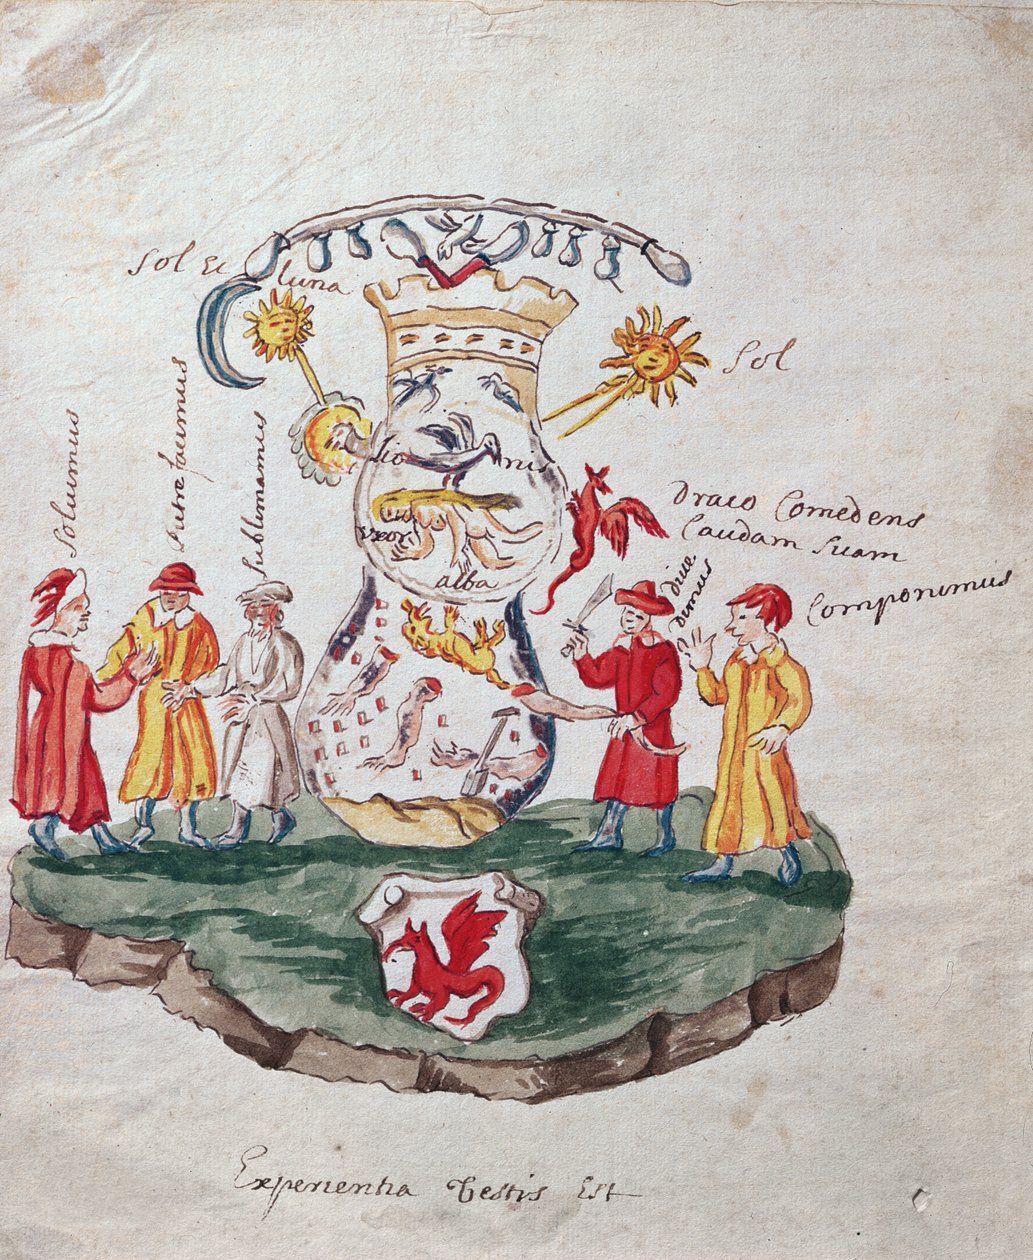 Sol Et luna
Sol
Soluimus
Putrefacimus
Sublimamus
lio nis
Uxor
alba
Draco Comedens
Caudam Suam
Componimus
Diui
dimus
Experientia Testis Est